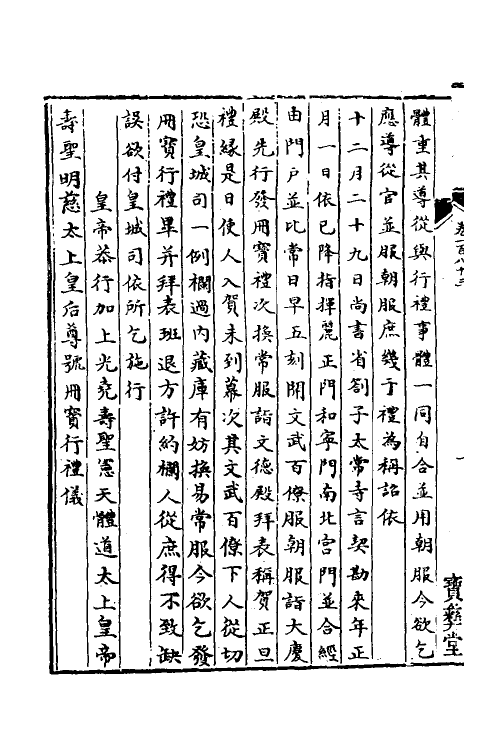 體重其導從與行禮事體一同自合並用朝服今欲乞
應導從官並服朝服庶幾于禮為稱詔依
十二月二十九日尚書省劄子太常寺言契勘來年正
月一日依已降指揮麗正門和寧門南北宮門並合經
由門戶並比常日早五刻開文武百僚服朝服詣大慶
殿先行發冊寶禮次換常服詣文德殿拜表稱賀正旦
禮緣是日使人入賀未到幕次其文武百僚下人從切
恐皇城司一例欄過內藏庫有妨換易常服今欲乞發
冊寶行禮畢并拜表班退方許約欄人從庶得不致缺
誤欲付皇城司依所乞施行
皇帝恭行加上光堯壽聖憲天體道太上皇帝
壽聖明慈太上皇后尊號冊寶行禮儀
卷一百八十三
寶彝堂